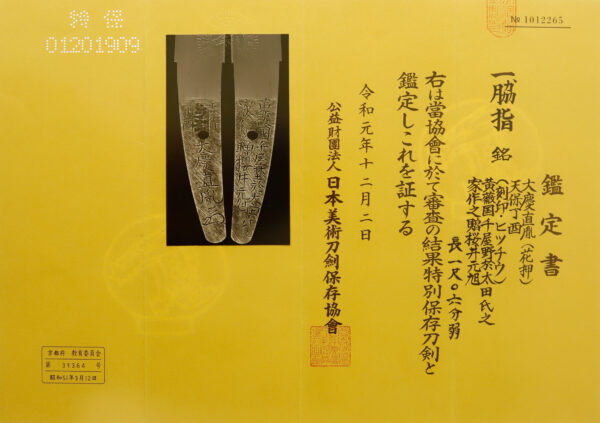 特保
01201909
№ 1012265
鑑定書
一脇指 銘
大慶直胤(花押)
天保丁酉
(刻印・ヒツチウ)
黄薇国千屋野於太田氏之
家作之贈桜井元旭
長一尺〇六分弱
右は當協會に於て審査の結果特別保存刀劍と
鑑定しこれを証する
令和元年十二月二日
公益財團法人日本美術刀劍保存協會
京都府 教育委員会
第 37364 号
昭和51年3月12日